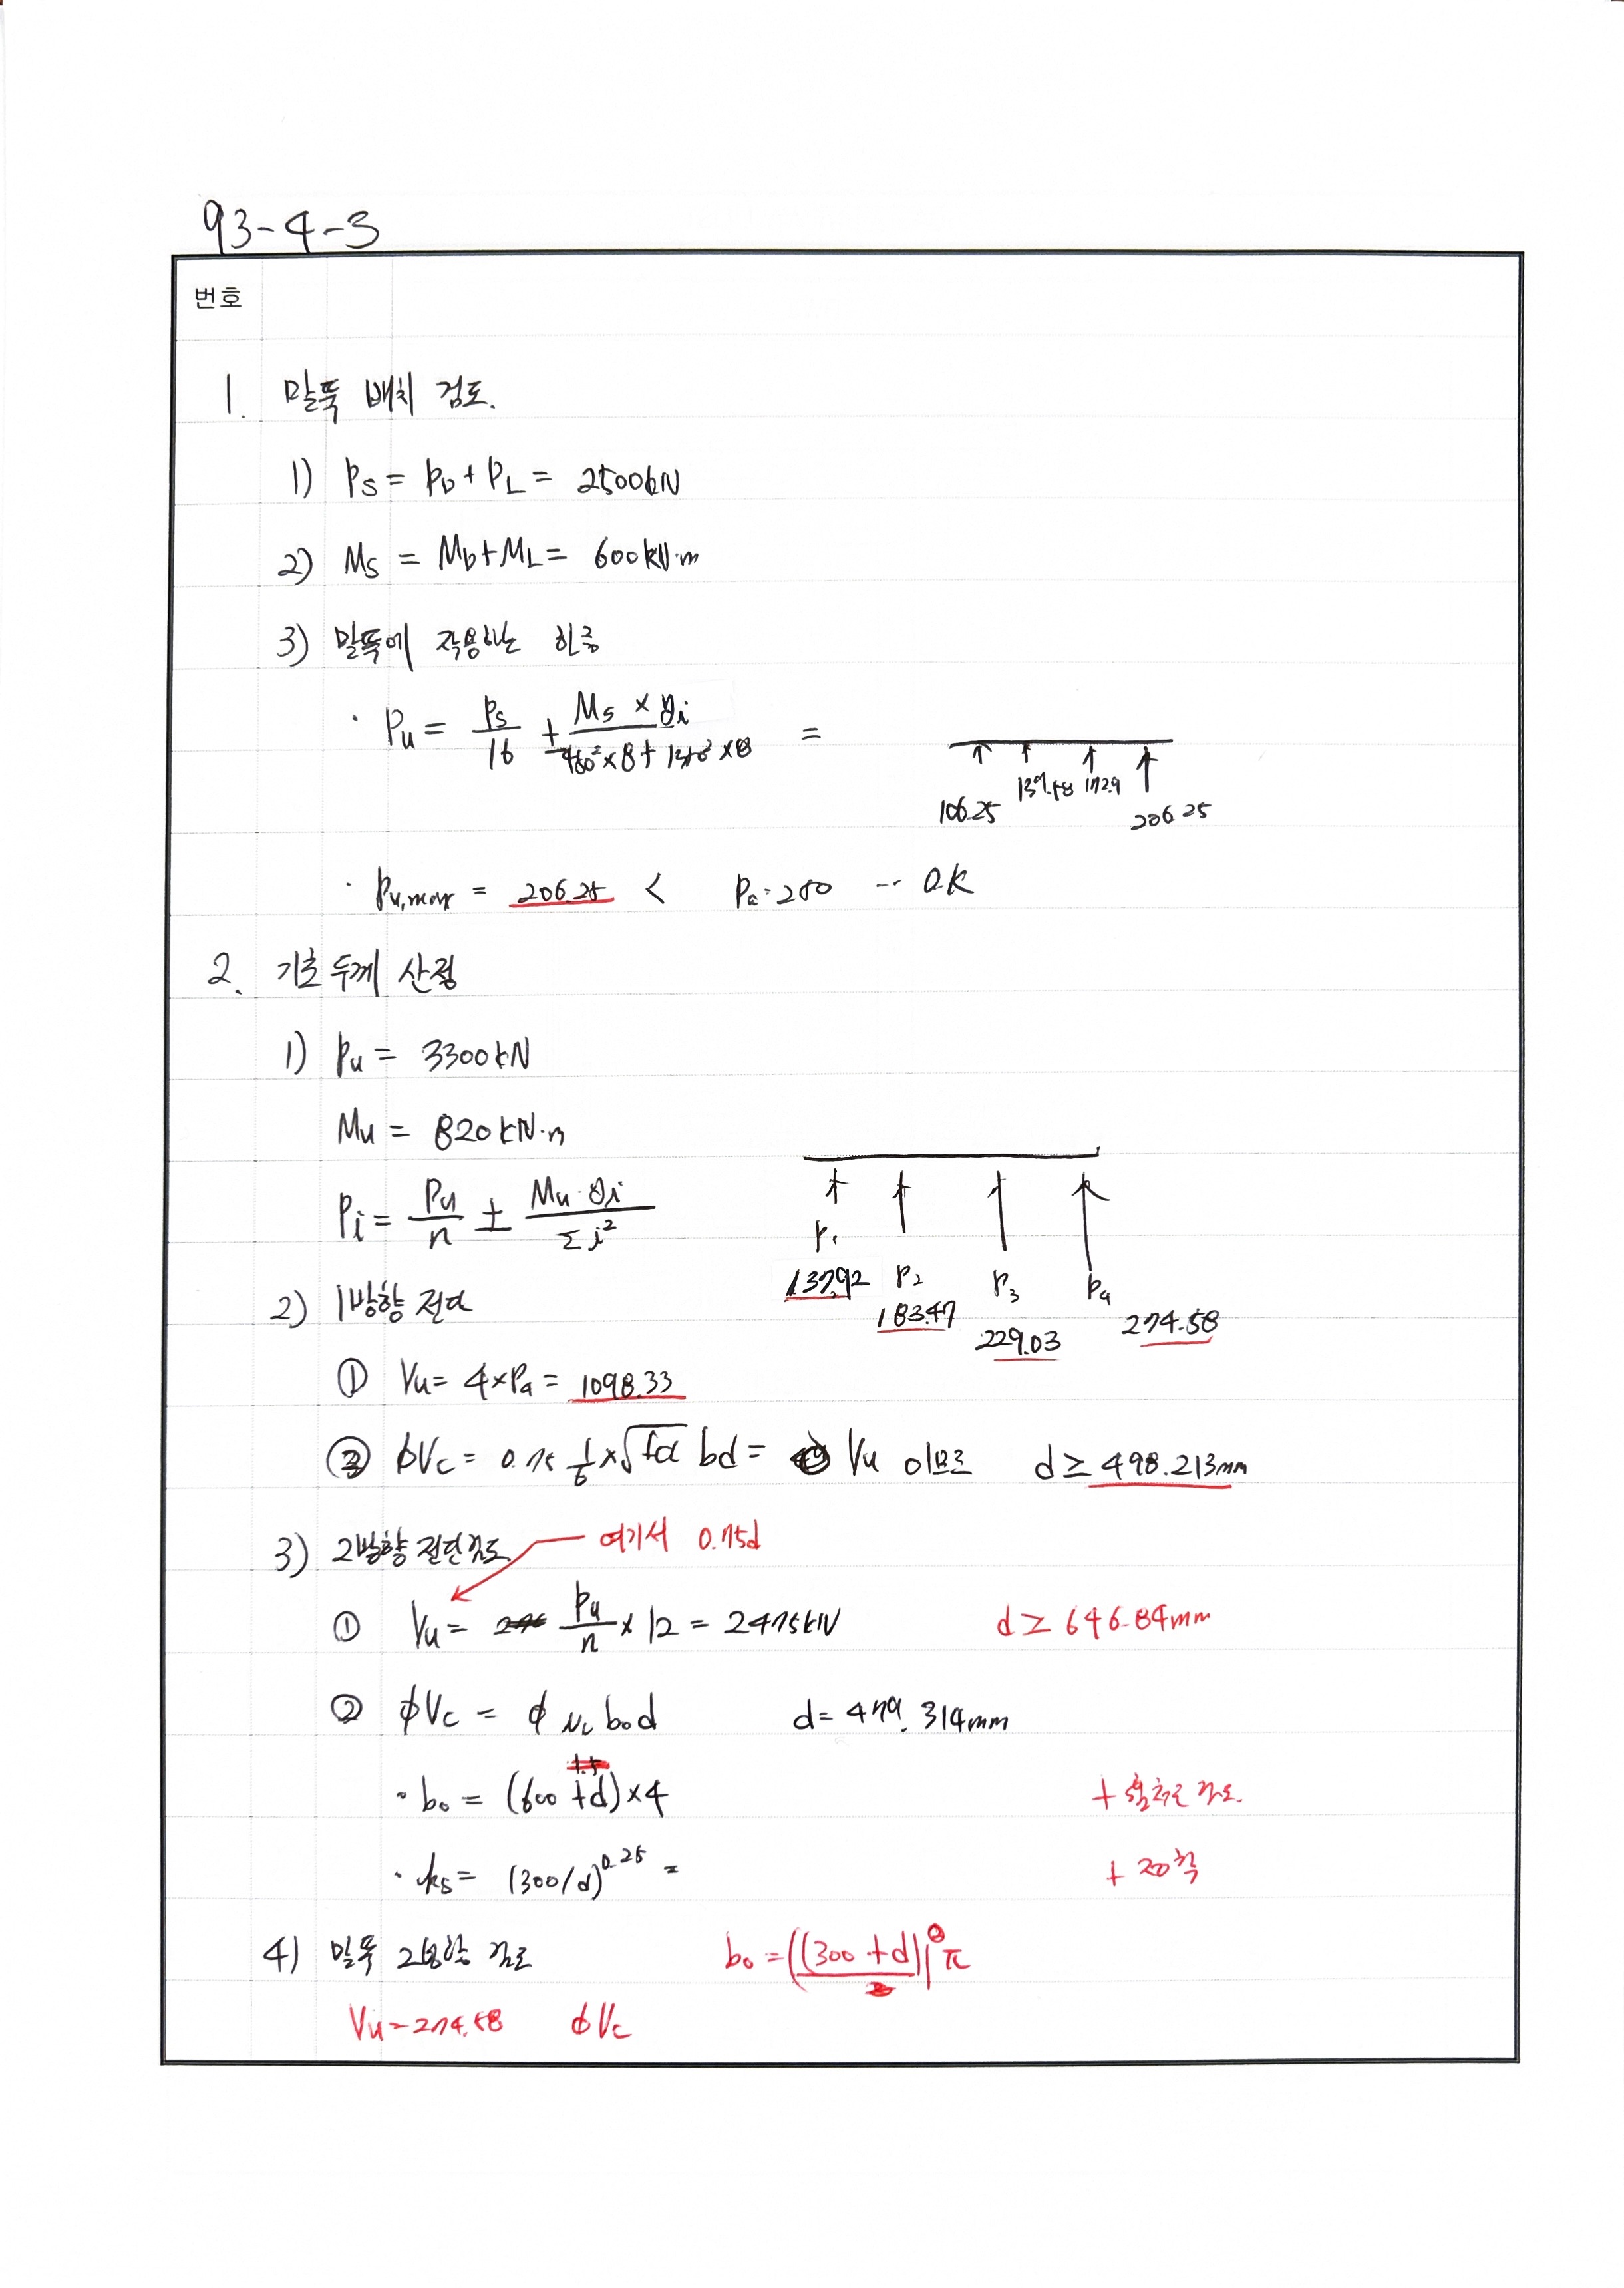 93-4-3
번호
1. 말뚝 배치 검토.
1) Ps = PD + PL = 2500kN
2) Ms = MD + ML = 600kN·m
3) 말뚝에 작용하는 하중
· Pu = Ps/16 ± Ms × yi / 450² × 8 + 1350² × 8 =
106.25 139.58 172.9 206.25
· Pu,max = 206.25 < Pa = 250 -- OK
2. 기초 두께 산정
1) Pu = 3300kN
Mu = 820kN·m
Pi = Pu/n ± Mu·yi/Σi²
P1 P2 P3 P4
137.92 183.47 229.03 274.58
2) 1방향 전단
① Vu = 4×P4 = 1098.33
② φVc = 0.75 1/6 × √fck bd = Vu 이므로 d ≥ 498.213mm
3) 2방향 전단검토
여기서 0.75d
① Vu = Pu/n × 12 = 2475kN d ≥ 646.84mm
② φVc = φ νc bo d d = 479.314mm
· bo = (600 + d)×4 + 철근 검토.
· ks = (300/d)^0.25 =
4) 말뚝 2방향 검토 bo = ((300 + d)) π
Vu = 274.58 φVc